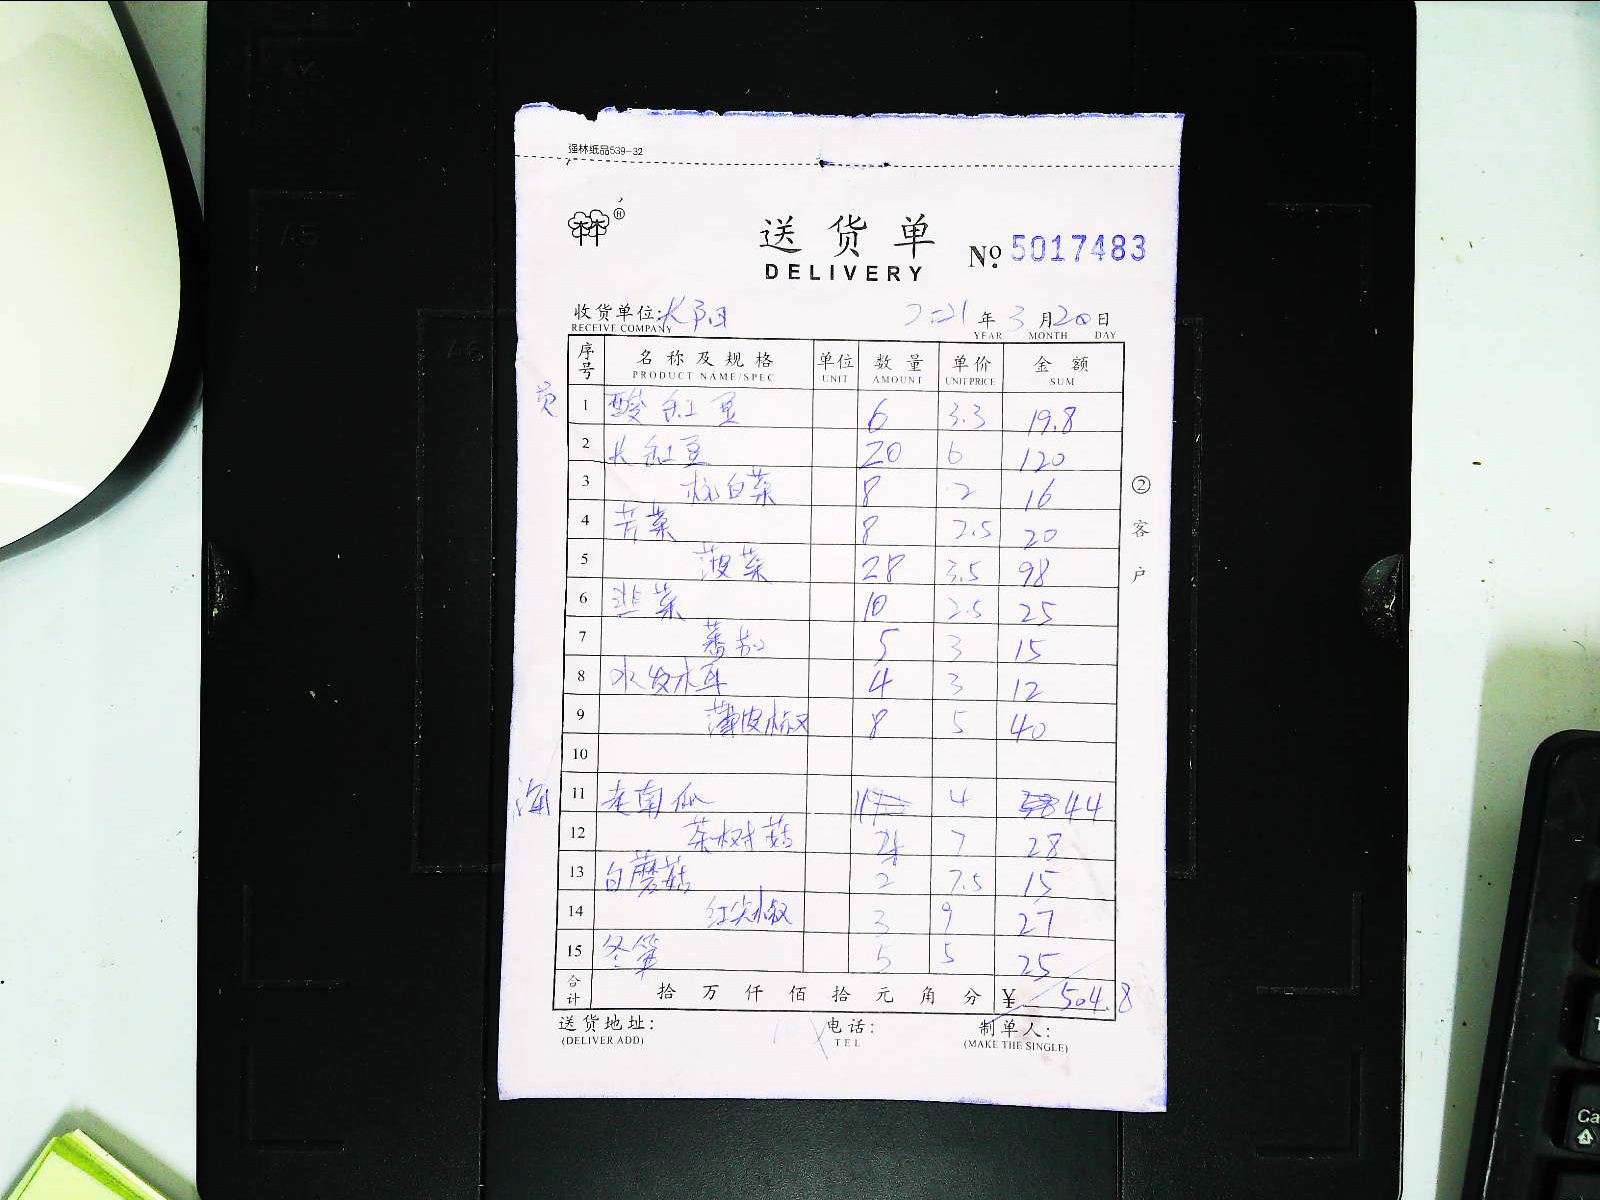 强林纸品539-32
送货单
DELIVERY
Nº 5017483
收货单位: 长阳 2021年3月20日
RECEIVE COMPANY YEAR MONTH DAY
序号 名称及规格 单位 数量 单价 金额
PRODUCT NAME/SPEC UNIT AMOUNT UNIT PRICE SUM
1 酸缸豆 6 3.3 19.8
2 长缸豆 20 6 120
3 杭白菜 8 2 16
4 芹菜 8 2.5 20
5 菠菜 28 3.5 98
6 韭菜 10 2.5 25
7 蕃茄 5 3 15
8 水发木耳 4 3 12
9 薄皮椒 8 5 40
10
11 老南瓜 11 4 44
12 茶树菇 4 7 28
13 白蘑菇 2 7.5 15
14 红尖椒 3 9 27
15 冬笋 5 5 25
合计 拾万仟佰拾元角分 ¥ 504.8
②客户
送货地址: 电话: 制单人:
(DELIVER ADD) TEL (MAKE THE SINGLE)